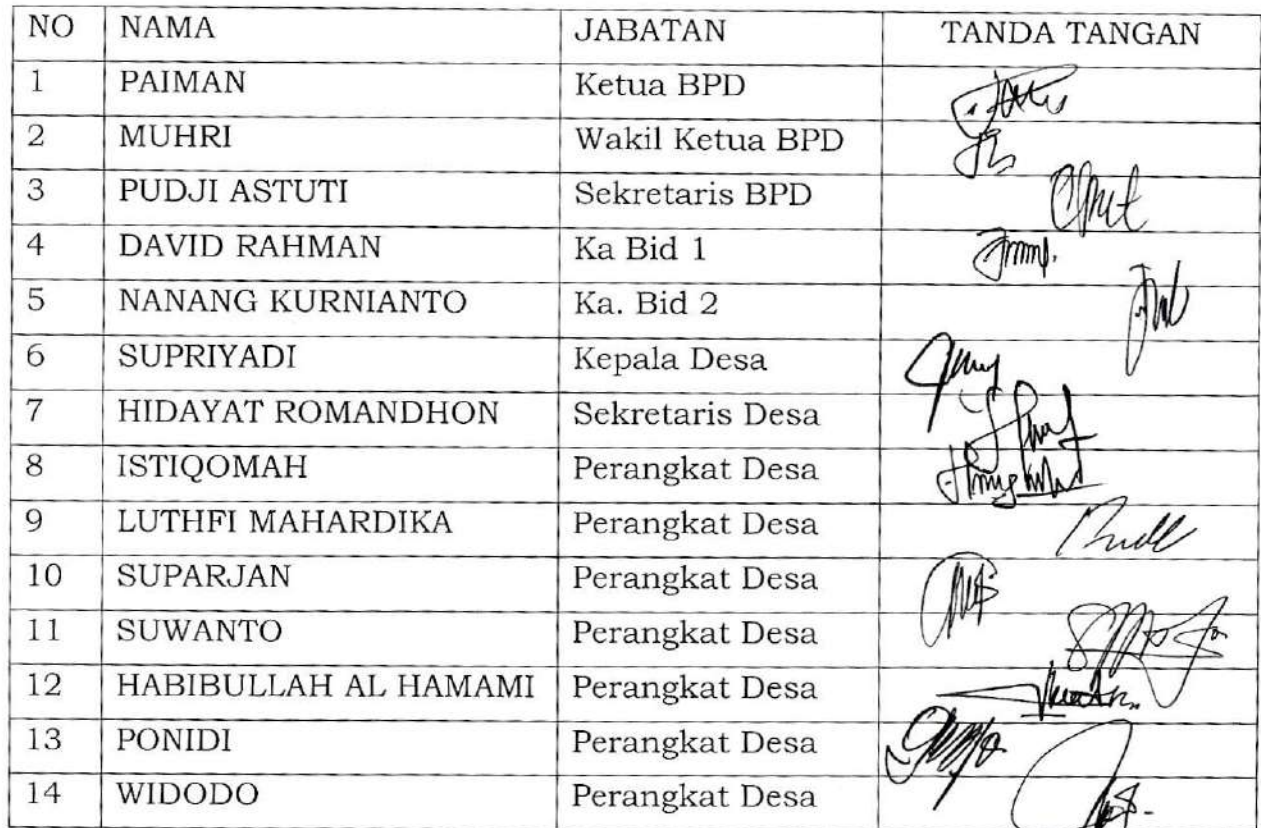 NO NAMA JABATAN TANDA TANGAN
1 PAIMAN Ketua BPD
2 MUHRI Wakil Ketua BPD
3 PUDJI ASTUTI Sekretaris BPD
4 DAVID RAHMAN Ka Bid 1
5 NANANG KURNIANTO Ka. Bid 2
6 SUPRIYADI Kepala Desa
7 HIDAYAT ROMANDHON Sekretaris Desa
8 ISTIQOMAH Perangkat Desa
9 LUTHFI MAHARDIKA Perangkat Desa
10 SUPARJAN Perangkat Desa
11 SUWANTO Perangkat Desa
12 HABIBULLAH AL HAMAMI Perangkat Desa
13 PONIDI Perangkat Desa
14 WIDODO Perangkat Desa